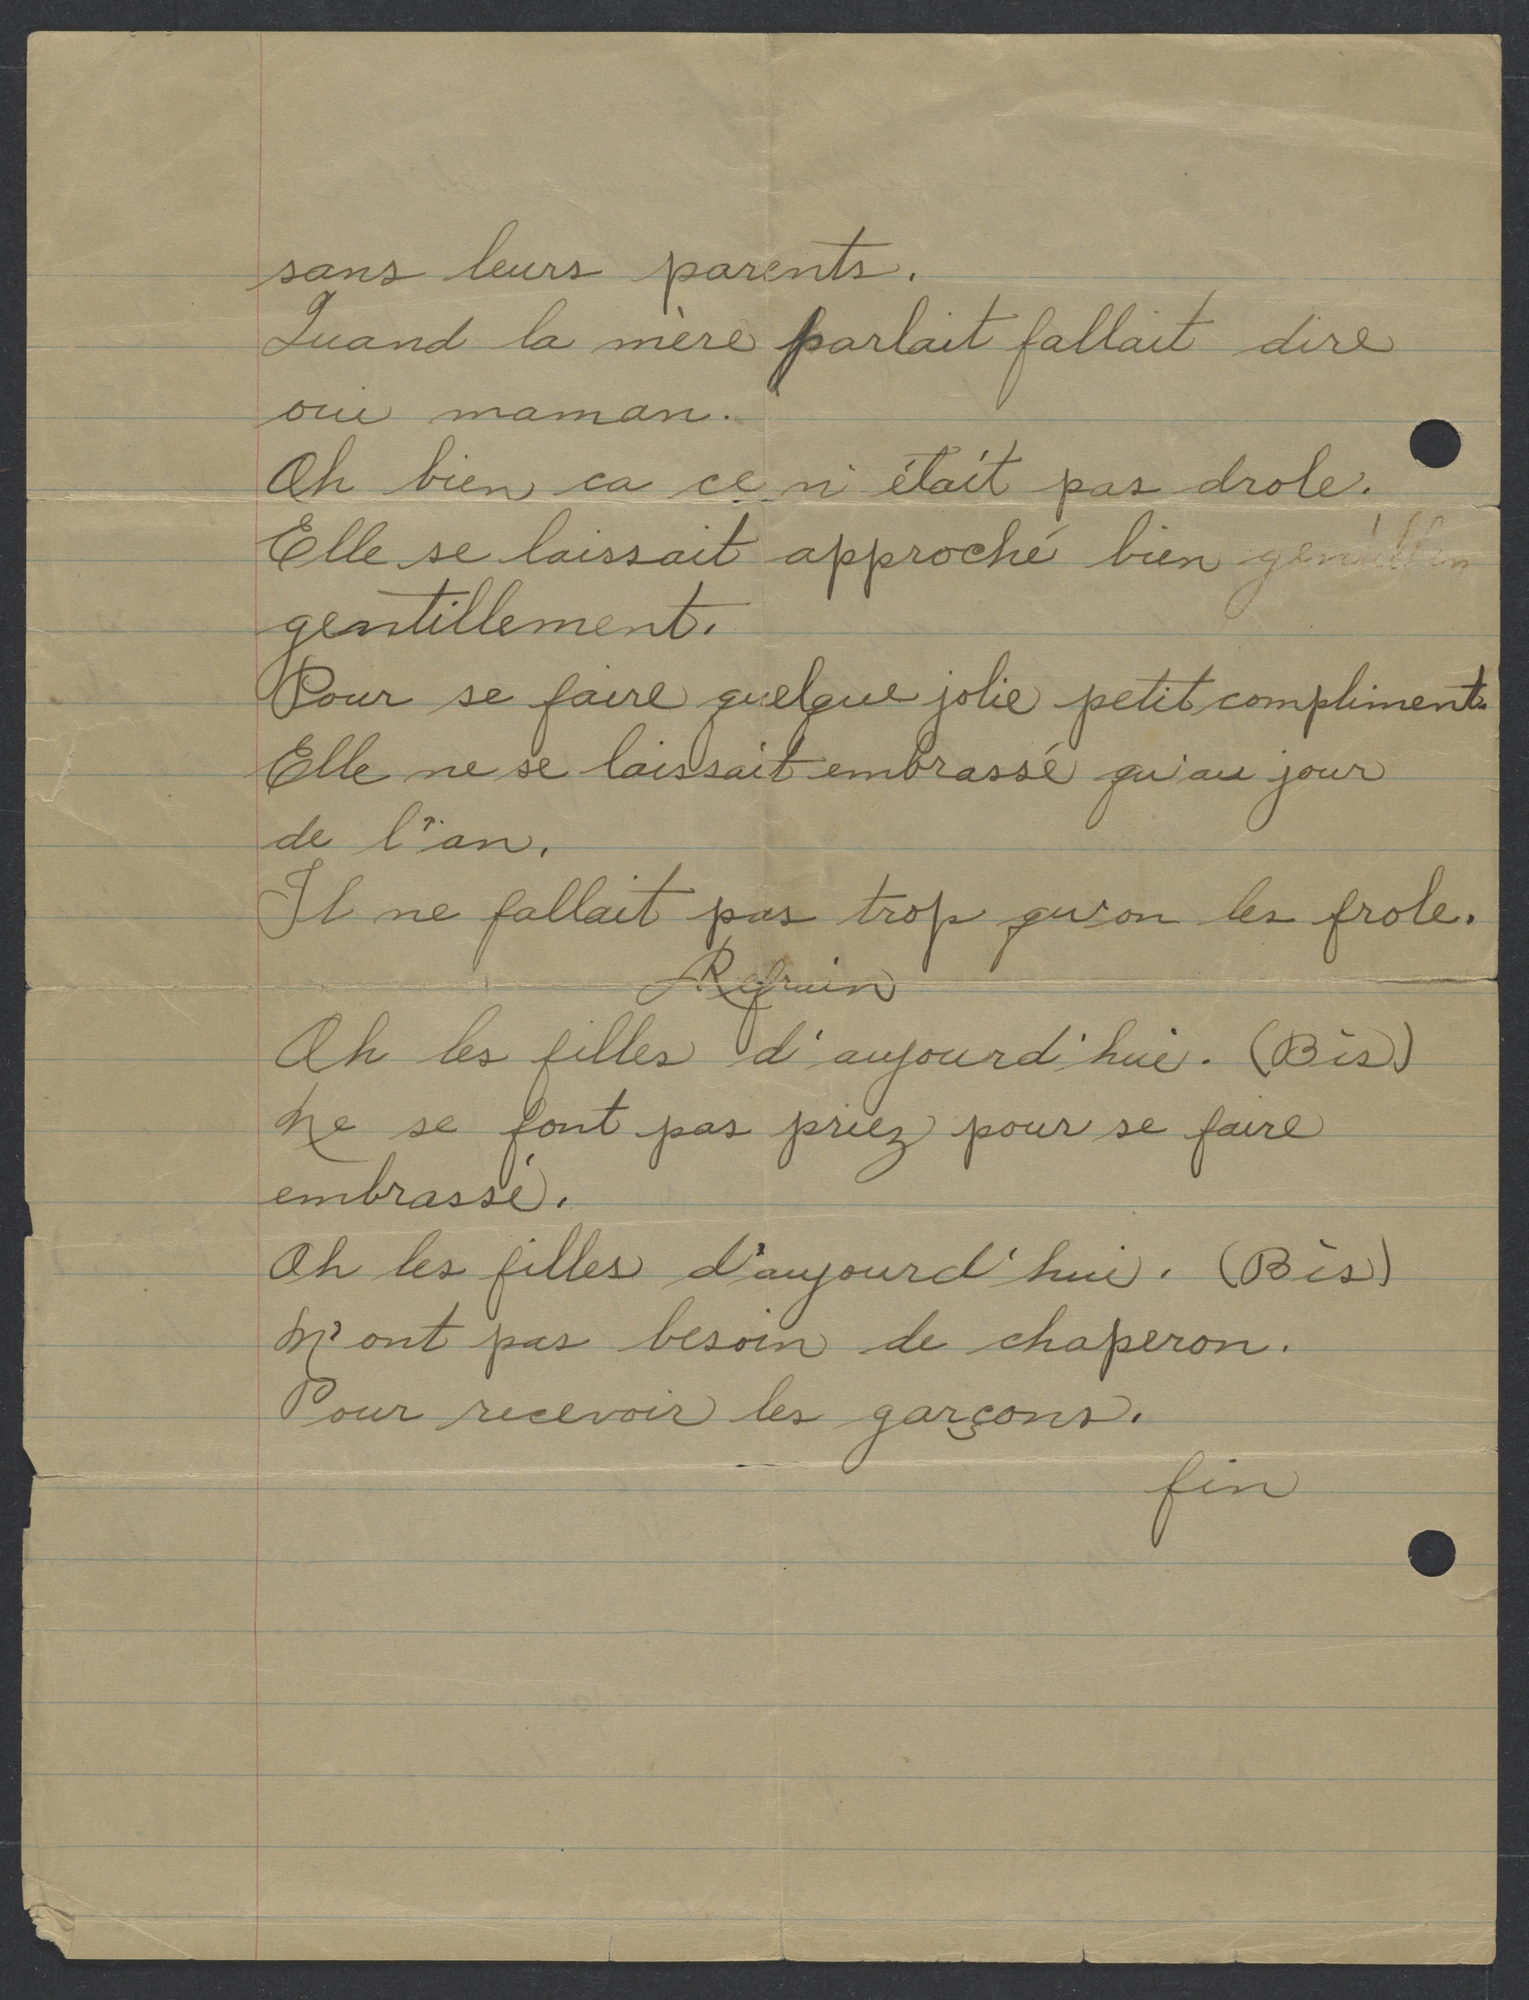 sans leurs parents.
Quand la mère parlait fallait dire
oui maman.
Oh bien ca ce n'était pas drole.
Elle se laissait approché bien
gentillement.
Pour se faire quelque jolie petit compliment.
Elle ne se laissait embrassé qu'au jour
de l'an.
Il ne fallait pas trop qu'on les frole.
Refrain
Oh les filles d'aujourd'hui. (Bis)
Ne se font pas priez pour se faire
embrassé.
Oh les filles d'aujourd'hui. (Bis)
N'ont pas besoin de chaperon.
Pour recevoir les garçons.
fin